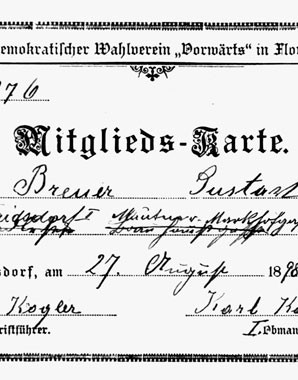 demokratischer Wahlverein „Vorwärts“ in Flo
276
Mitglieds-Karte.
Breuer Gustav
Mautner-Markhofga
dorf, am 27. August 189
Kogler Karl
riftführer. I. Obman